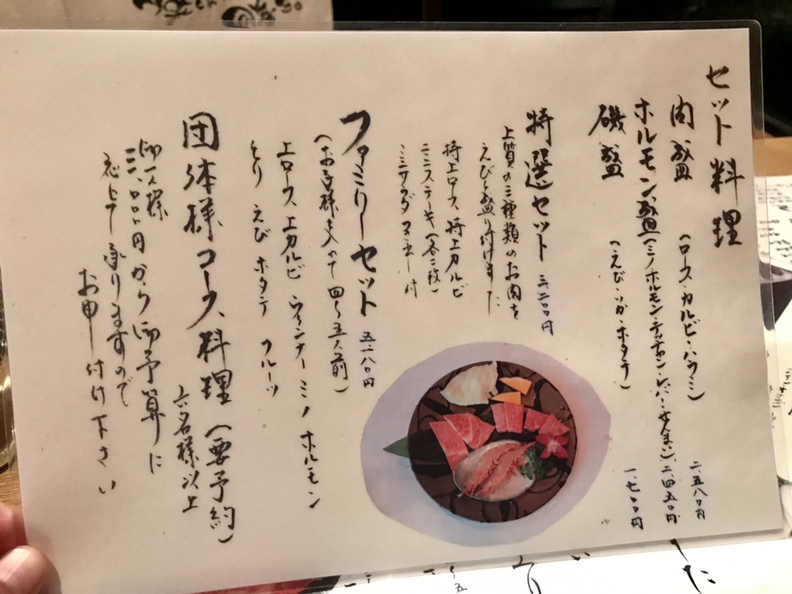 セット料理
肉盛 (ロース・カルビ・ハラミ) 二.五八〇円
ホルモン盛 (ミノ・ホルモン・テッチャン・レバー・せんまい) 二四五〇円
磯盛 (えび・いか・ホタテ) 一.七〇〇円
特選セット 三.二〇〇円
上質の三種類のお肉を
えびと盛り付けました
特上ロース 特上カルビ
ミニステーキ(各二枚)
ミニサラダ 付
ファミリーセット 五.一八〇円
(お子様も入れて四~五人前)
上ロース 上カルビ ウィンナー ミノ ホルモン
とり えび ホタテ フルーツ
団体様コース料理 (要予約)
六名様以上
御一人様
三.〇〇〇円から御予算に
応じて承りますので
お申し付け下さい